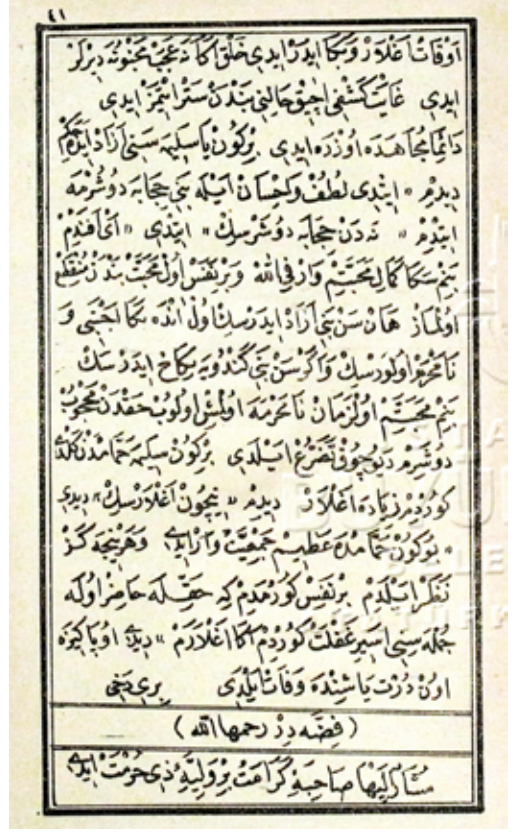 ٤١
اوقات اغلار و بكا ايدر ايدى خلق اكا نه عجب مجنونه ديرلر
ايدى غايت كشفى اچيق حالنى بندن ستر ايتمز ايدى
دائما مجاهده اوزره ايدى بركون يا سليمه سنى آزاد ايده‌جكم
ديدم « ايتدى لطف و احسان ايله بنى حجابه دوشرمه
ايتدم « نه‌دن حجابه دوشرسك » ايتدى « اى افندم
بنم سكا كمال محبتم وار فى الله و بر نفس اول محبت بندن منقطع
اولماز همان سن بنى آزاد ايدرسك اول آنده بكا اجنبى و
نامحرم اولورسك و اكر سن بنى كندويه نكاح ايدرسك
بنم محبتم اول زمان نامحرمه اولمش اولوب حقدن محجوب
دوشرم ديو چوق تضرع ايلدى بركون سليمه حمامدن كلدى
كوردم زياده اغلار ديدم « نيچون اغلارسك » ديدى
« بوكون حمامده عظيم جمعيت وار ايدى و هر نيجه كز
نظر ايلدم بر نفس كورمدم كه حقله حاضر اوله
جمله سنى اسير غفلت كوردم اكا اغلارم » ديدى او پاكيزه
اون درت ياشنده وفات ايلدى برى دخى
( فضه در رحمها الله )
مشار اليها صاحبۀ كرامت بر وليۀ ذى حرمت ايدى